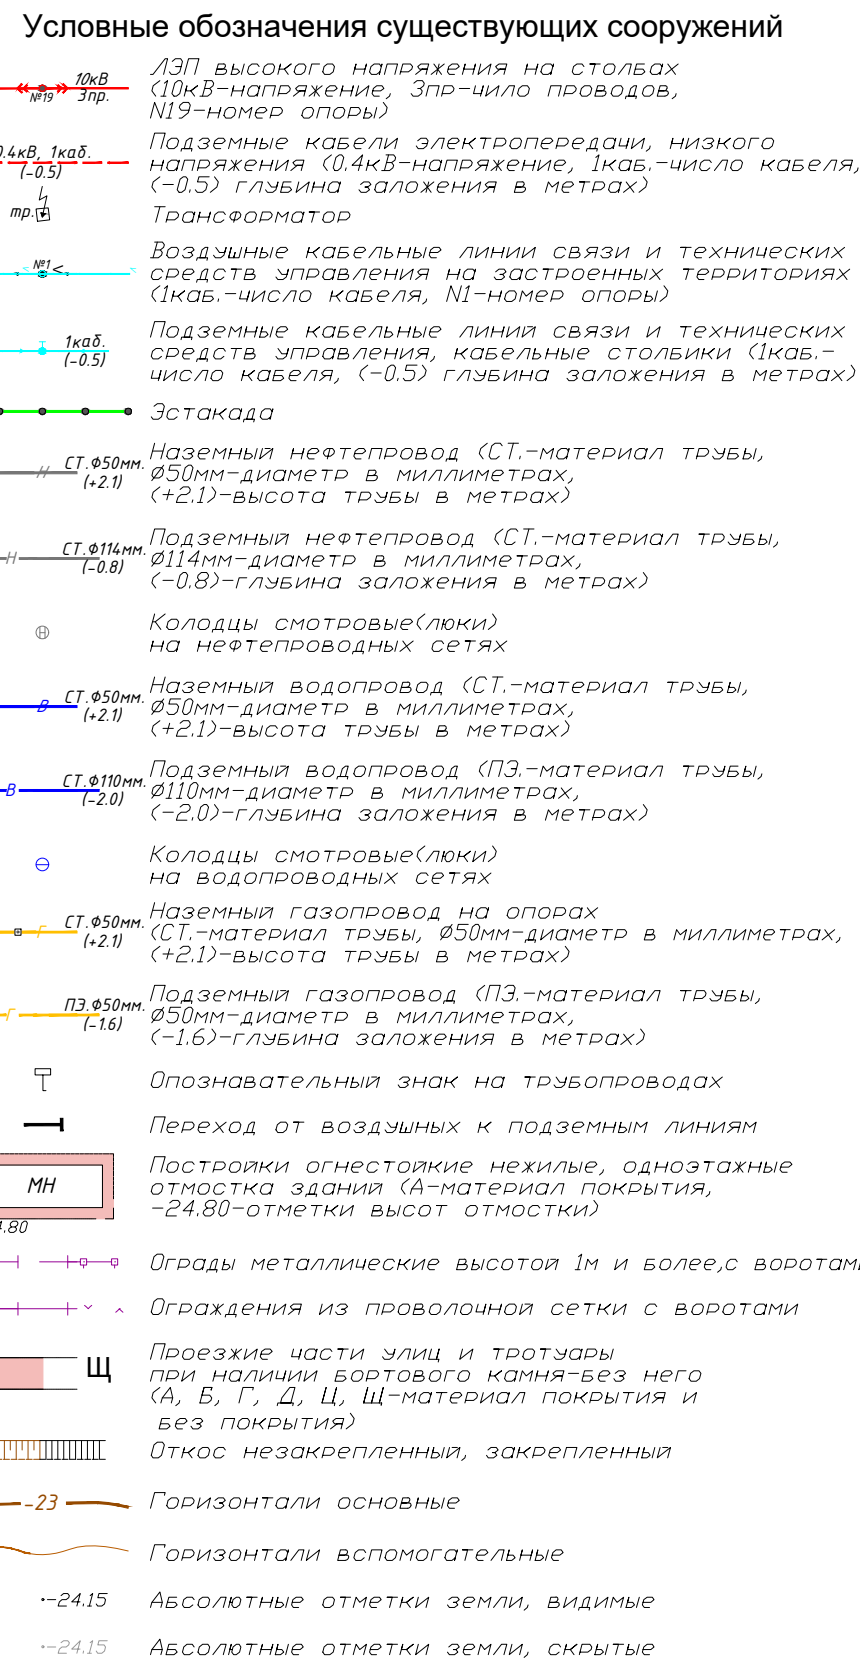 Условные обозначения существующих сооружений
10кВ
3пр.
№19
ЛЭП высокого напряжения на столбах
(10кВ-напряжение, 3пр-чило проводов,
N19-номер опоры)
0.4кВ, 1каб.
(-0.5)
Подземные кабели электропередачи, низкого
напряжения (0.4кВ-напряжение, 1каб.-число кабеля,
(-0.5) глубина заложения в метрах)
тр.
Трансформатор
№1
Воздушные кабельные линии связи и технических
средств управления на застроенных территориях
(1каб.-число кабеля, N1-номер опоры)
1каб.
(-0.5)
Подземные кабельные линий связи и технических
средств управления, кабельные столбики (1каб.-
число кабеля, (-0.5) глубина заложения в метрах)
Эстакада
Н
СТ.Ф50мм.
(+2.1)
Наземный нефтепровод (СТ.-материал трубы,
Ø50мм-диаметр в миллиметрах,
(+2.1)-высота трубы в метрах)
Н
СТ.Ф114мм.
(-0.8)
Подземный нефтепровод (СТ.-материал трубы,
Ø114мм-диаметр в миллиметрах,
(-0.8)-глубина заложения в метрах)
Н
Колодцы смотровые(люки)
на нефтепроводных сетях
В
СТ.Ф50мм.
(+2.1)
Наземный водопровод (СТ.-материал трубы,
Ø50мм-диаметр в миллиметрах,
(+2.1)-высота трубы в метрах)
В
СТ.Ф110мм.
(-2.0)
Подземный водопровод (ПЭ.-материал трубы,
Ø110мм-диаметр в миллиметрах,
(-2.0)-глубина заложения в метрах)
Колодцы смотровые(люки)
на водопроводных сетях
Г
СТ.Ф50мм.
(+2.1)
Наземный газопровод на опорах
(СТ.-материал трубы, Ø50мм-диаметр в миллиметрах,
(+2.1)-высота трубы в метрах)
Г
ПЭ.Ф50мм.
(-1.6)
Подземный газопровод (ПЭ.-материал трубы,
Ø50мм-диаметр в миллиметрах,
(-1.6)-глубина заложения в метрах)
Опознавательный знак на трубопроводах
Переход от воздушных к подземным линиям
МН
4.80
Постройки огнестойкие нежилые, одноэтажные
отмостка зданий (А-материал покрытия,
-24.80-отметки высот отмостки)
Ограды металлические высотой 1м и более,с воротами
Ограждения из проволочной сетки с воротами
Щ
Проезжие части улиц и тротуары
при наличии бортового камня-без него
(А, Б, Г, Д, Ц, Щ-материал покрытия и
без покрытия)
Откос незакрепленный, закрепленный
-23
Горизонтали основные
Горизонтали вспомогательные
-24.15
Абсолютные отметки земли, видимые
-24.15
Абсолютные отметки земли, скрытые